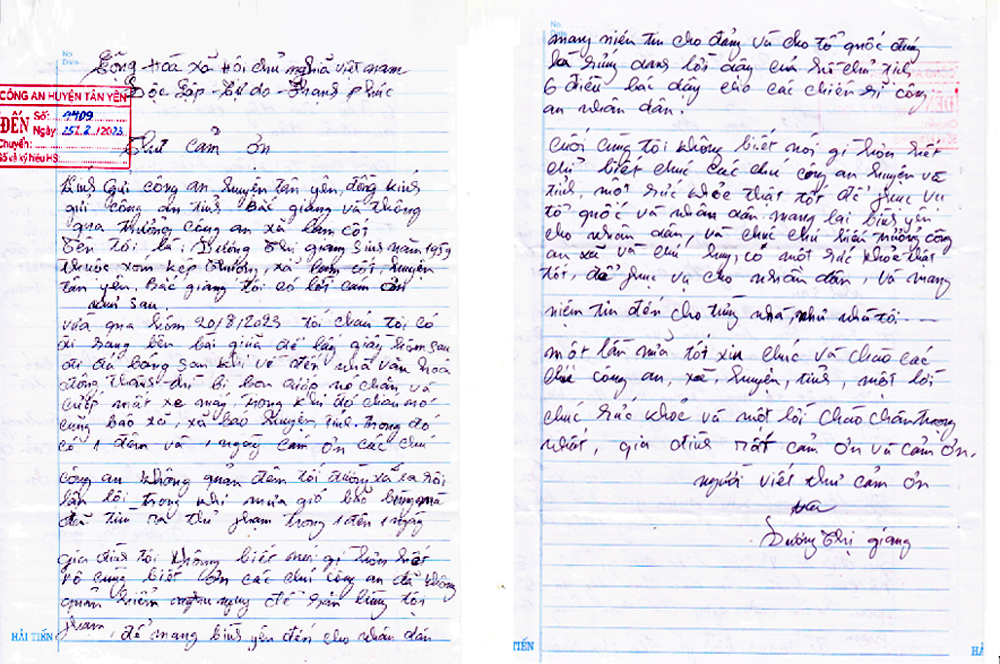 No.
Date
Cộng Hòa xã Hội chủ nghĩa việt nam
Độc Lập - Tự do - Hạnh phúc
CÔNG AN HUYỆN TÂN YÊN
ĐẾN
Số: 1409
Ngày 25/.../2023
Chuyển:
Số và ký hiệu HS
Thư cảm ơn
Kính gửi công an huyện tân yên, đồng kính
gửi công an tỉnh Bắc giang và thông
qua trưởng công an xã lam cốt
Tên tôi là: Dương thị giang sinh năm 1959
thuộc xóm kép thượng, xã lam cốt, huyện
tân yên, Bắc giang tôi có lời cảm ơn
như sau
vừa qua hôm 20/8/2023 tối cháu tôi có
đi sang bên bãi giữa để lấy giấy hôm sau
đi đá bóng sau khi về đến nhà văn hóa
đông thành thì bị bọn cướp nó chặn và
cướp mất xe máy trong khi đó cháu nó
cùng báo xã, xã báo huyện, tỉnh. trong đó
có 1 đêm và 1 ngày cảm ơn các chú
công an không quản đêm tối đường xá xa xôi
lặn lội trong khi mưa gió bão bùng mà
đã tìm ra thủ phạm trong 1 đêm 1 ngày
Gia đình tôi không biết nói gì hơn hết
vô cùng biết ơn các chú công an đã không
quản hiểm nguy để săn lùng tội
phạm, để mang bình yên đến cho nhân dân
HẢI TIẾN
No.
Date
mang niềm tin cho đảng và cho tổ quốc đúng
là đúng theo lời dậy của hồ chủ tịch
6 điều bác dậy cho các chiến sĩ công
an nhân dân.
Cuối cùng tôi không biết nói gì hơn hết
chỉ biết chúc các chú công an huyện và
tỉnh, một sức khỏe thật tốt để phục vụ
tổ quốc và nhân dân mang lại bình yên
cho nhân dân, và chúc chú hiếu trưởng công
an xã và chú huy, có một sức khỏe thật
tốt, để phục vụ cho nhân dân, và mang
niềm tin đến cho từng nhà, như nhà tôi
một lần nữa tôi xin chúc và chào các
chú công an, xã, huyện, tỉnh, một lời
chúc sức khỏe và một lời chào chân trọng
nhất, gia đình rất cảm ơn và cảm ơn.
người viết thư cảm ơn
Dương thị giang
TIẾN
HẢ